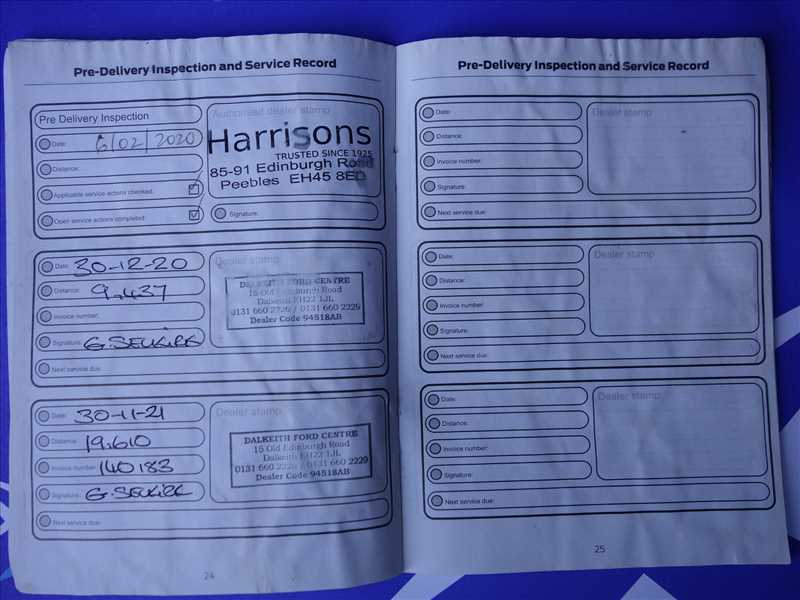 Pre-Delivery Inspection and Service Record
Pre Delivery Inspection
Date: 6/02/2020
Distance:
Applicable service actions checked:
Open service actions completed:
Authorised dealer stamp
Harrisons
TRUSTED SINCE 1925
85-91 Edinburgh Road
Peebles EH45 8ED
Signature:
Date: 30-12-20
Distance: 9,437
Invoice number:
Signature: G. SELKIRK
Next service due:
Dealer stamp
DALKEITH FORD CENTRE
15 Old Edinburgh Road
Dalkeith EH22 1JL
0131 660 2226 / 0131 660 2229
Dealer Code 94518AB
Date: 30-11-21
Distance: 19,610
Invoice number: 140183
Signature: G. SELKIRK
Next service due:
Dealer stamp
DALKEITH FORD CENTRE
15 Old Edinburgh Road
Dalkeith EH22 1JL
0131 660 2226 / 0131 660 2229
Dealer Code 94518AB
24
Pre-Delivery Inspection and Service Record
Date:
Distance:
Invoice number:
Signature:
Next service due:
Dealer stamp
Date:
Distance:
Invoice number:
Signature:
Next service due:
Dealer stamp
Date:
Distance:
Invoice number:
Signature:
Next service due:
Dealer stamp
25